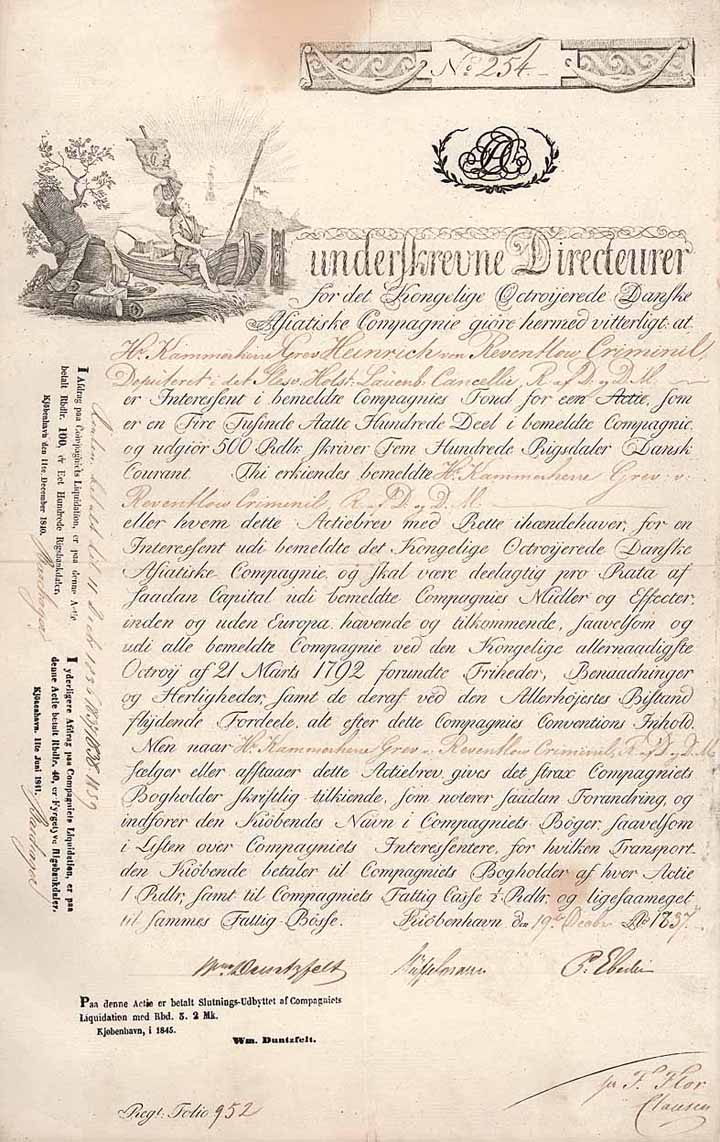 No. 254
underskrevne Directeurer
for det Kongelige Octroijerede Danske
Asiatiske Compagnie giöre hermed vitterligt: at
Hr. Kammerherre Grev Heinrich von Reventlow Criminil,
Deputeret i det Slesv. Holst. Lauenb. Cancellie, R. af D. og D. M.
er Interessent i bemeldte Compagnies Fond for een Actie, som
er en Fire Tusinde Aatte Hundrede Deel i bemeldte Compagnie,
og udgiör 500 Rdlr. skriver Fem Hundrede Rigsdaler Dansk
Courant. Thi erkiendes bemeldte Hr. Kammerherre Grev v.
Reventlow Criminil, R. af D. og D. M.
eller hvem dette Actiebrev med Rette ihændehaver, for en
Interessent udi bemeldte det Kongelige Octroijerede Danske
Asiatiske Compagnie, og skal være deelagtig pro Rata af
saadan Capital udi bemeldte Compagnies Midler og Effecter,
inden og uden Europa, havende og tilkommende, saavelsom og
udi alle bemeldte Compagnie ved den Kongelige allernaadigste
Octroij af 21 Marts 1792 forundte Friheder, Benaadninger
og Herligheder, samt de deraf ved den Allerhöjestes Bistand
flijdende Fordeele, alt efter dette Compagnies Conventions Inhold.
Men naar Hr. Kammerherre Grev v. Reventlow Criminil, R. af D. og D. M.
sælger eller afstaaer dette Actiebrev, gives det strax Compagniets
Bogholder skriftlig tilkiende, som noterer saadan Forandring, og
indförer den Kiöbendes Navn i Compagniets Böger, saavelsom
i Listen over Compagniets Interessentere, for hvilken Transport
den Kiöbende betaler til Compagniets Bogholder af hver Actie
1 Rdlr. samt til Compagniets Fattig Casse ½ Rdlr. og ligesaameget
til sammes Fattig-Bösse. Kiöbenhavn, den 19de Decbr. Ao. 1837.
Wm. Duntzfelt
P. Eberlin
I Afdrag paa Compagniets Liquidation, er paa denne Actie
betalt Rbdlr. 100, er Eet Hundrede Rigsbankdaler,
Kjöbenhavn den 11te December 1840.
I yderligere Afdrag paa Compagniets Liquidation, er paa
denne Actie betalt Rbdlr. 40, er Fyrgetyve Rigsbankdaler,
Kjöbenhavn, 11te Juni 1841,
Paa denne Actie er betalt Slutnings-Udbyttet af Compagniets
Liquidation med Rbd. 5. 2 Mk.
Kjøbenhavn, i 1845.
Wm. Duntzfelt.
Regt. Folio 952
F. Flor
Clausen